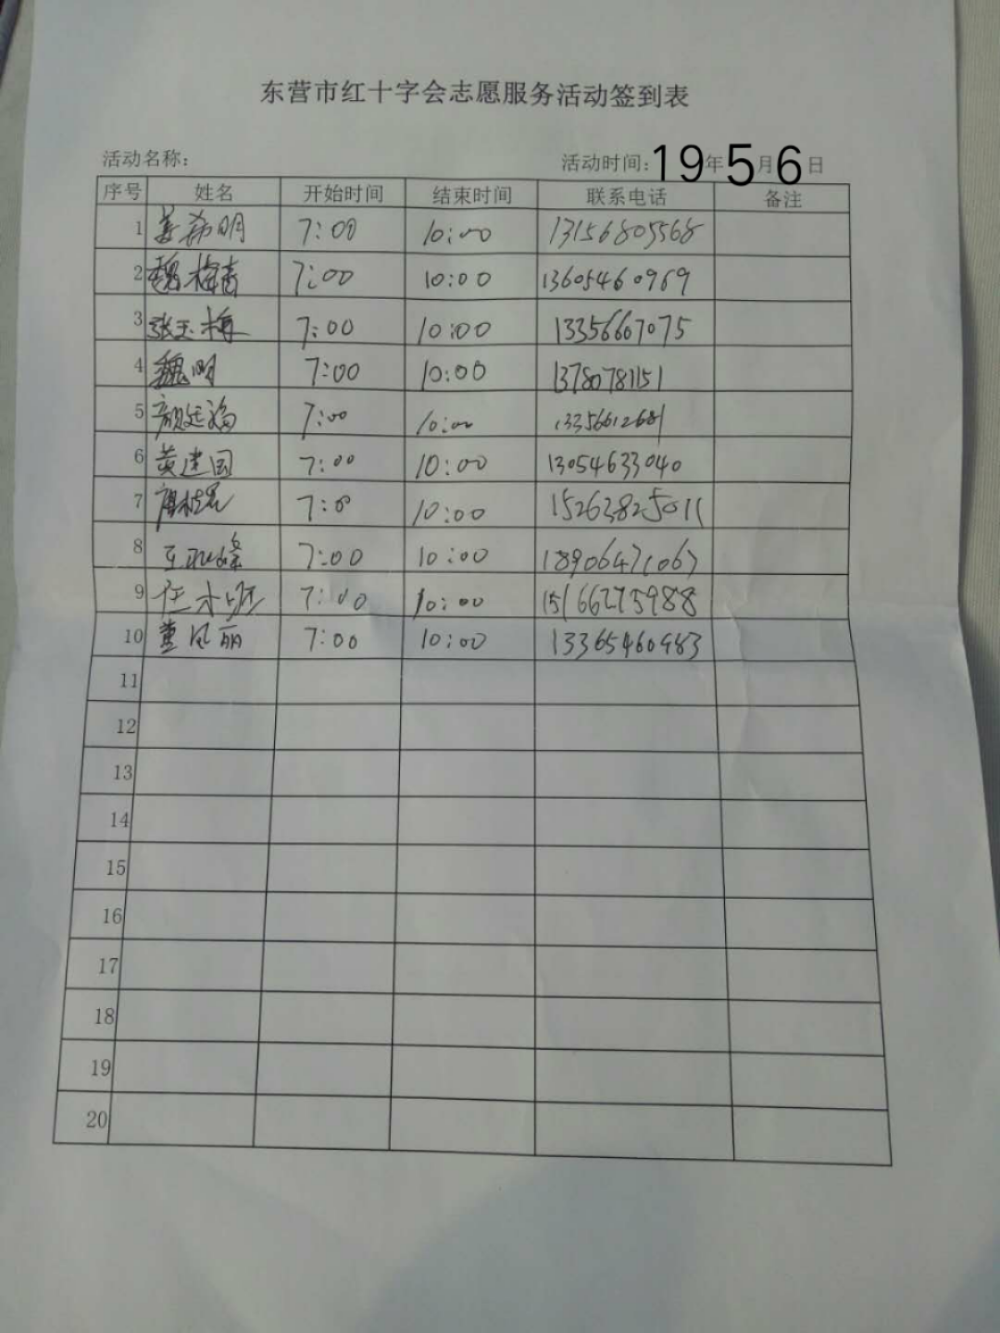 东营市红十字会志愿服务活动签到表
活动名称: 活动时间:19年5月6日
序号 姓名 开始时间 结束时间 联系电话 备注
1 姜希明 7:00 10:00 13156805568
2 魏梅青 7:00 10:00 13605460969
3 张玉梅 7:00 10:00 13356667075
4 魏明 7:00 10:00 13780781151
5 颜廷福 7:00 10:00 13356612681
6 黄建国 7:00 10:00 13054633040
7 7:0 10:00 15263825011
8 10:00 7:00 18906471067
9 7:00 10:00 15166275988
10 董凤丽 7:00 10:00 13365460983
11
12
13
14
15
16
17
18
19
20